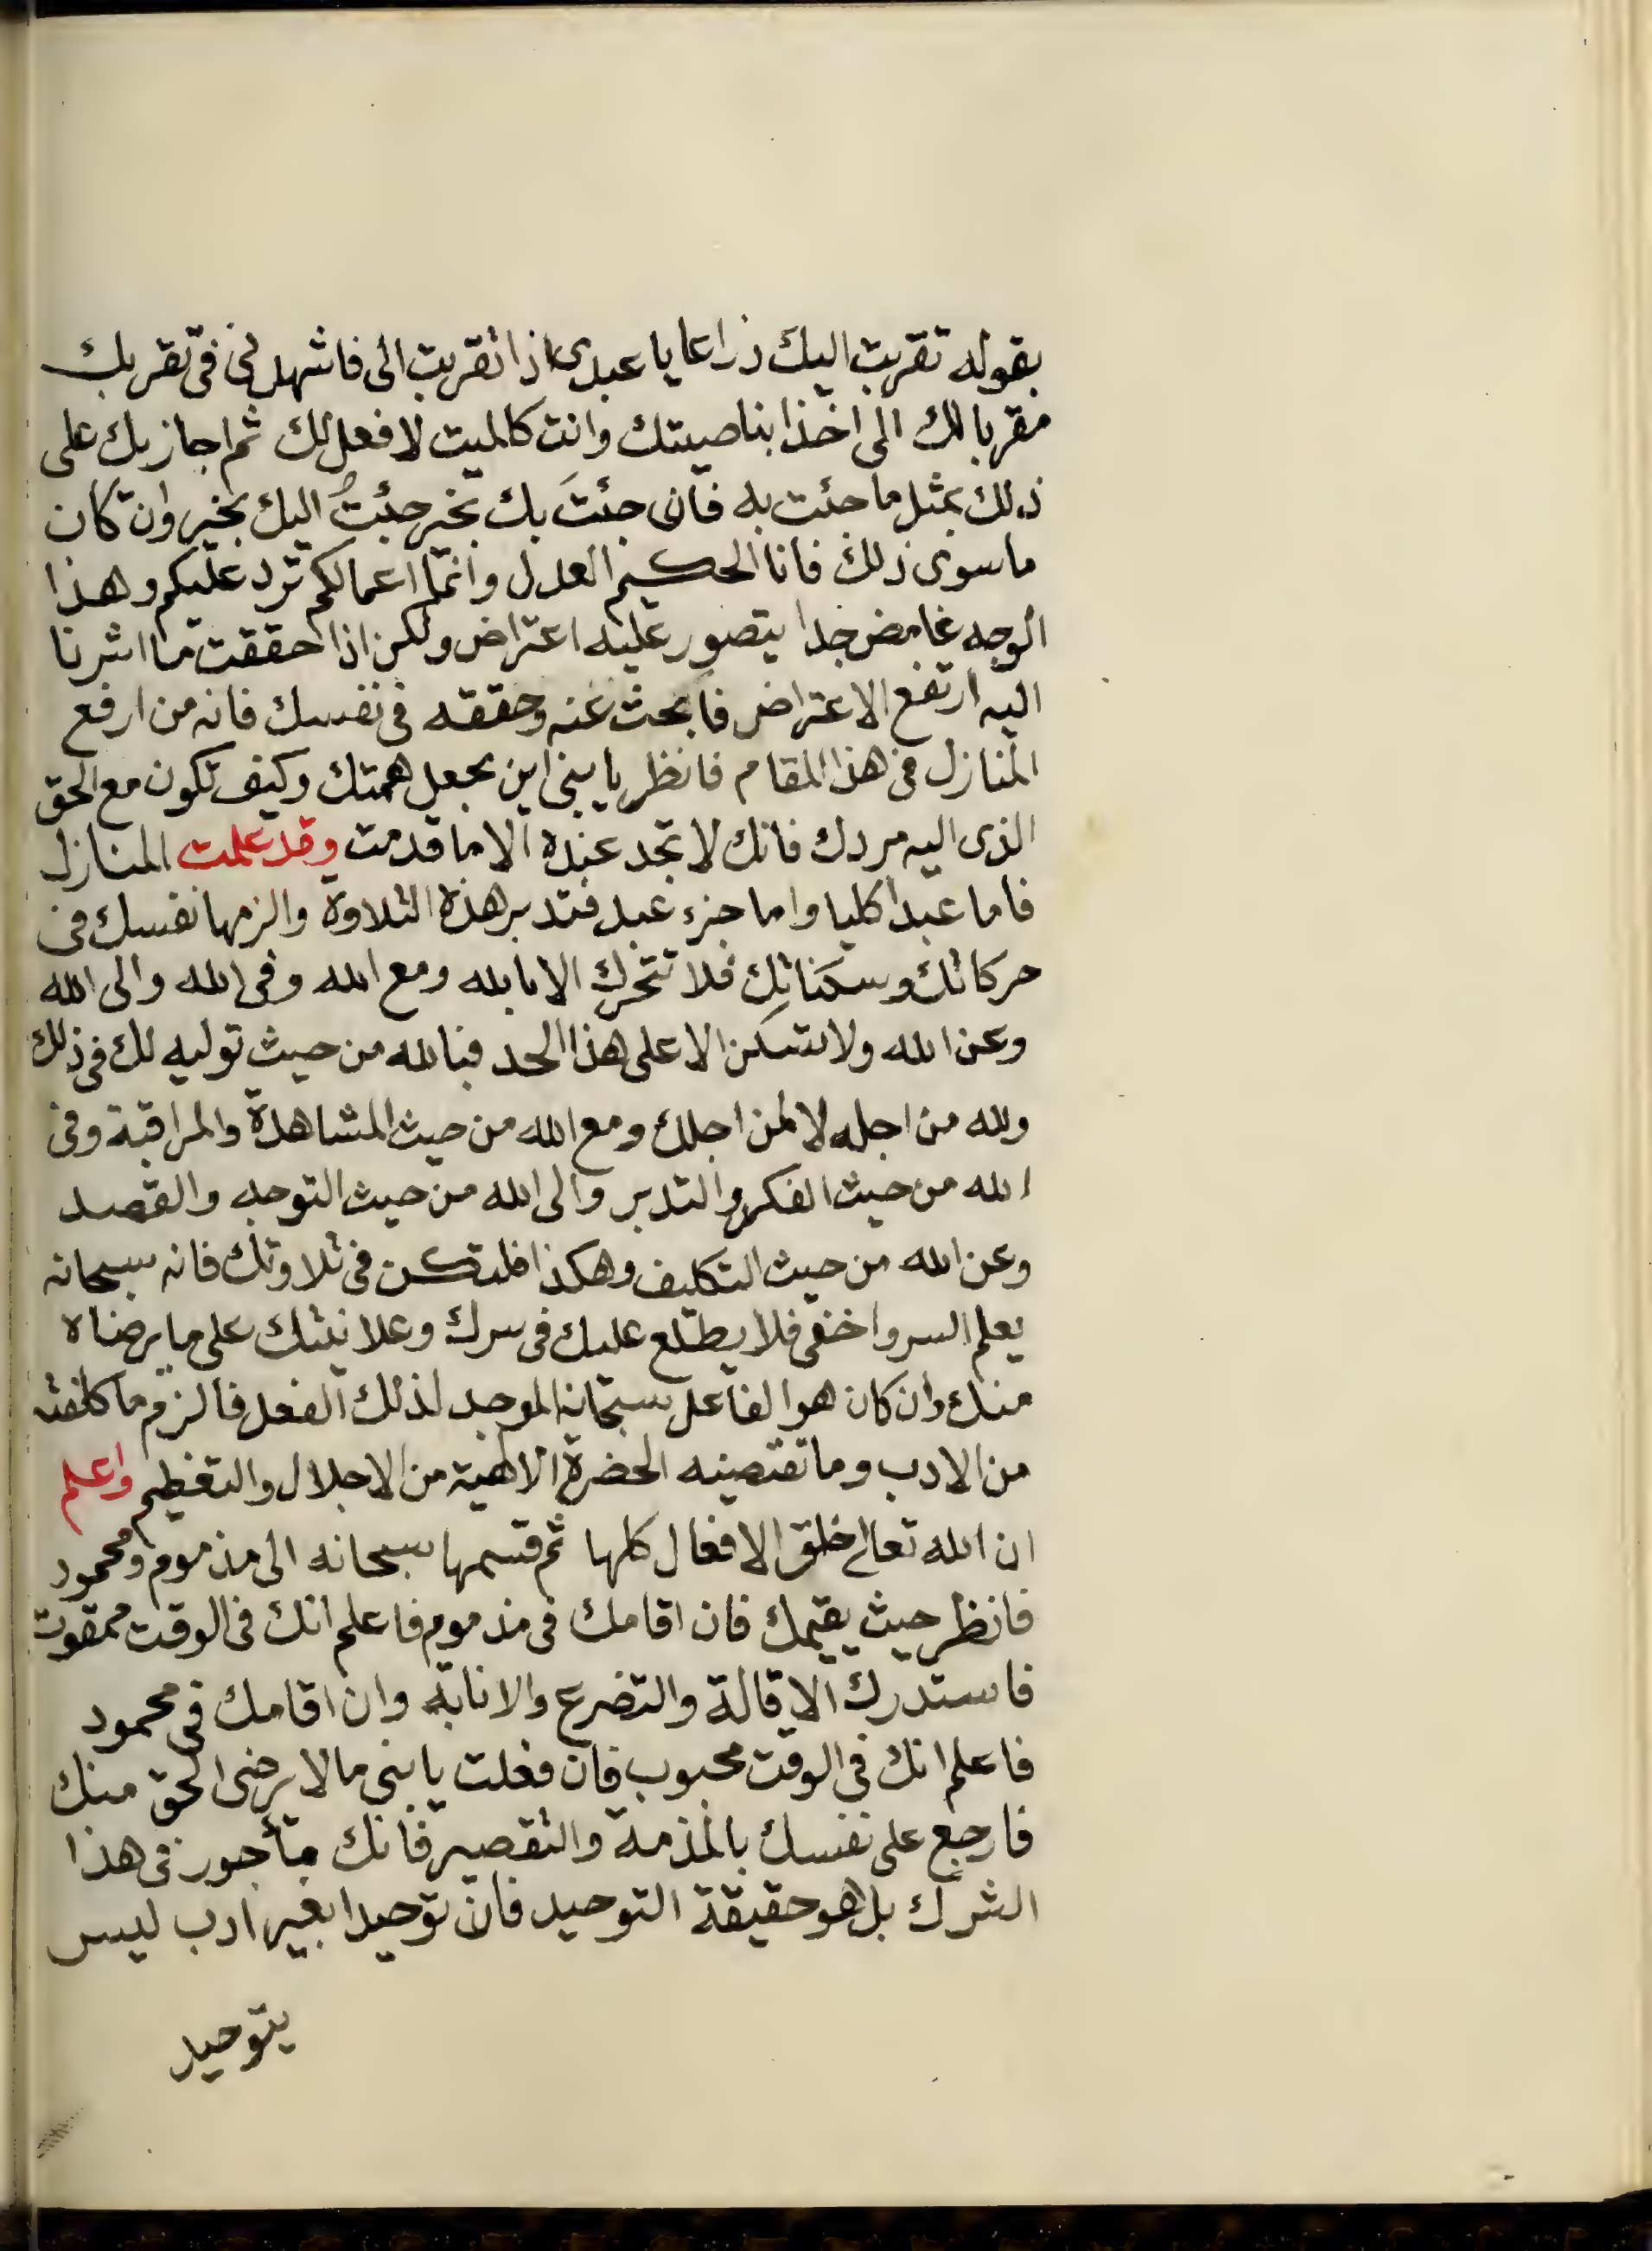 بقوله تقربت اليك ذراعا يا عبدى اذا تقربت الى فاشهدنى فى تقربك
مقربا لك الى اخذا بناصيتك وانت كالميت لا فعل لك ثم اجازيك على
ذلك بمثل ما جئت به فان جئتَ بك بخير جئتُ اليك بخير وان كان
ما سوى ذلك فانا الحكيم العدل وانما اعمالكم ترد عليكم وهذا
الوجه غامض جدا يتصور عليه اعتراض ولكن اذا حققت ما اشرنا
اليه ارتفع الاعتراض فابحث عنه وحققه فى نفسك فانه من ارفع
المنازل فى هذا المقام فانظر يا بنى اين تجعل همتك وكيف تكون مع الحق
الذى اليه مردك فانك لا تجد عنده الا ما قدمت وقد علمت المنازل
فاما عبدا كليا واما جزء عبد فتدبر هذه التلاوة والزمها نفسك فى
حركاتك وسكناتك فلا تتحرك الا بالله ومع الله وفى الله والى الله
وعن الله ولا تسكن الا على هذا الحد فبالله من حيث توليه لك فى ذلك
ولله من اجله لا لمن اجلك ومع الله من حيث المشاهدة والمراقبة وفى
الله من حيث الفكر والتدبر والى الله من حيث التوجه والقصد
وعن الله من حيث التكليف وهكذا فلتكن فى تلاوتك فانه سبحانه
يعلم السر واخفى فلا يطلع عليك فى سرك وعلانيتك على ما يرضاه
منك وان كان هو الفاعل سبحانه الموجد لذلك الفعل فالزم ما كلفته
من الادب وما تقتضيه الحضرة الالهية من الاجلال والتعظيم واعلم
ان الله تعالى خلق الافعال كلها ثم قسمها سبحانه الى مذموم ومحمود
فانظر حيث يقيمك فان اقامك فى مذموم فاعلم انك فى الوقت ممقوت
فاستدرك الاقالة والتضرع والانابة وان اقامك فى محمود
فاعلم انك فى الوقت محبوب فان فعلت يا بنى ما لا يرضى الحق منك
فارجع على نفسك بالمذمة والتقصير فانك مأجور فى هذا
الشرك بل هو حقيقة التوحيد فان توحيدا بغير ادب ليس
بتوحيد